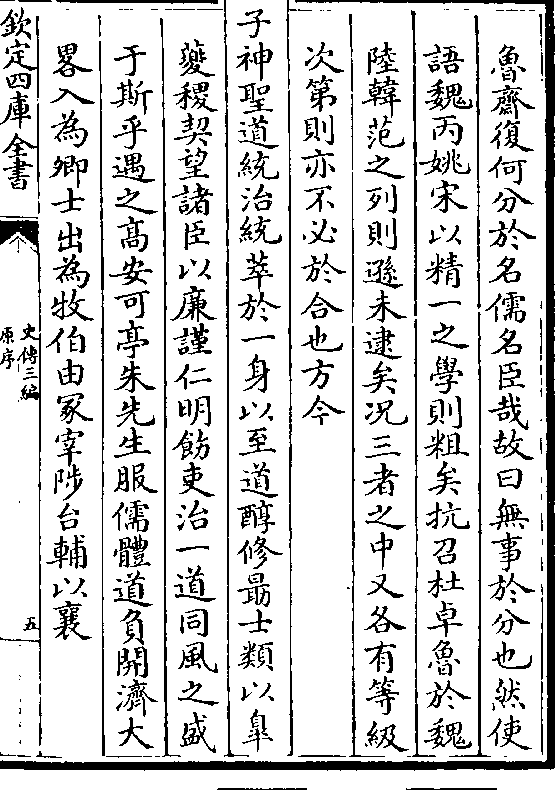 魯齋復何分於名儒名臣哉故曰無事於分也然使
語魏丙姚宋以精一之學則粗矣抗召杜卓魯於魏
陸韓范之列則遜未逮矣况三者之中又各有等級
次第則亦不必於合也方今
子神聖道統治統萃於一身以至道醇修最士類以臯
夔稷契望諸臣以廉謹仁明飭吏治一道同風之盛
于斯乎遇之髙安可亭朱先生服儒體道負開濟大
畧入為卿士出為牧伯由冡宰陟台輔以襄
欽定四庫全書
史傳三編
原序
五